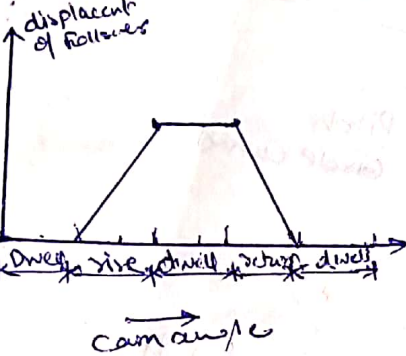 displacent
of follower
Dwell rise dwell return dwell
cam angle